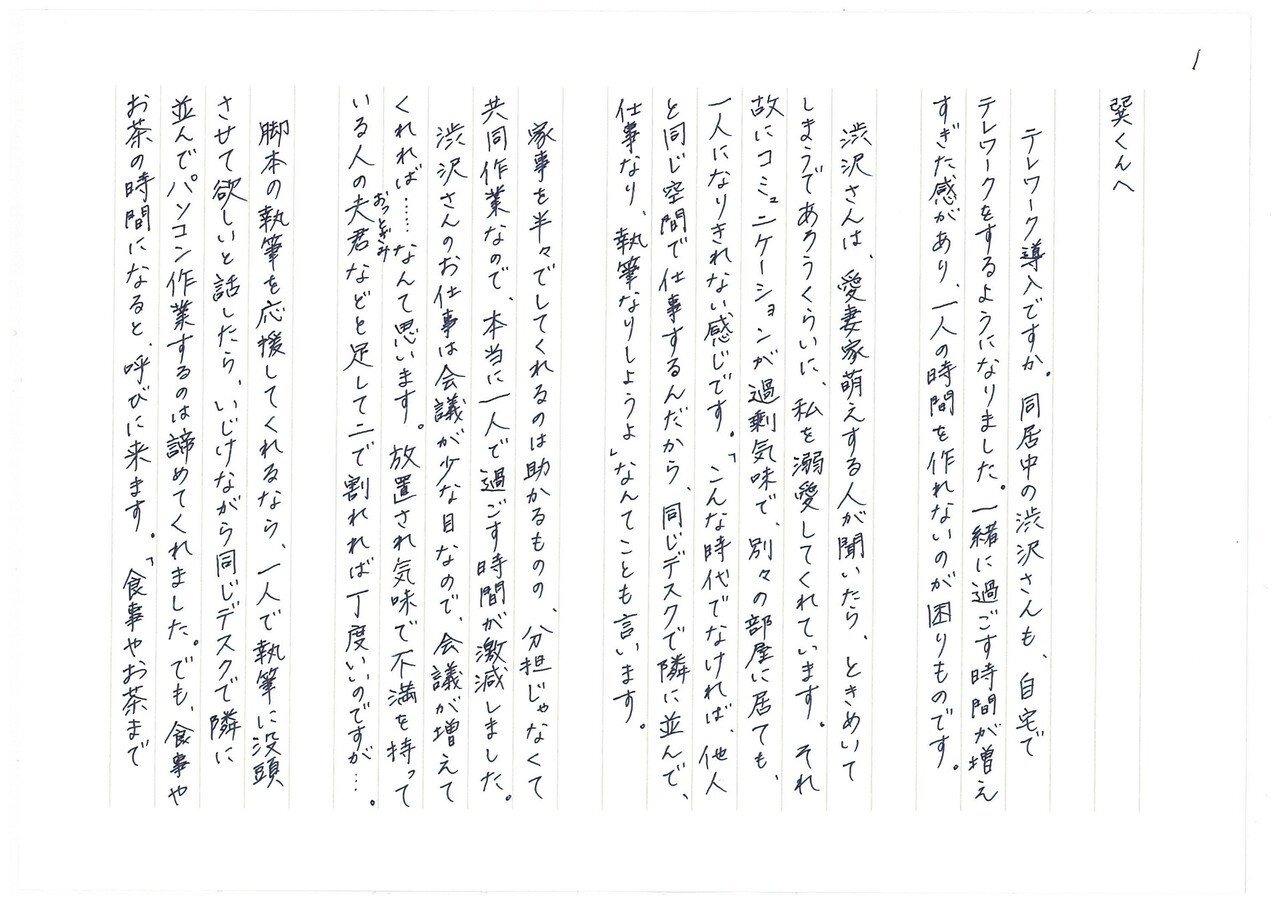 1
巽くんへ
テレワーク導入ですか。同居中の渋沢さんも、自宅で
テレワークをするようになりました。一緒に過ごす時間が増え
すぎた感があり、一人の時間を作れないのが困りものです。
渋沢さんは、愛妻家萌えする人が聞いたら、ときめいて
しまうであろうくらいに、私を溺愛してくれています。それ
故にコミュニケーションが過剰気味で、別々の部屋に居ても、
一人になりきれない感じです。「こんな時代でなければ、他人
と同じ空間で仕事するんだから、同じデスクで隣に並んで、
仕事なり、執筆なりしようよ」なんてことも言います。
家事を半々でしてくれるのは助かるものの、分担じゃなくて
共同作業なので、本当に一人で過ごす時間が激減しました。
渋沢さんのお仕事は会議が少な目なので、会議が増えて
くれれば……なんて思います。放置され気味で不満を持って
いる人の夫君などと足して二で割れれば丁度いいのですが…。
おっとぎみ
脚本の執筆を応援してくれるなら、一人で執筆に没頭
させて欲しいと話したら、いじけながら同じデスクで隣に
並んでパソコン作業するのは諦めてくれました。でも、食事や
お茶の時間になると、呼びに来ます。「食事やお茶まで